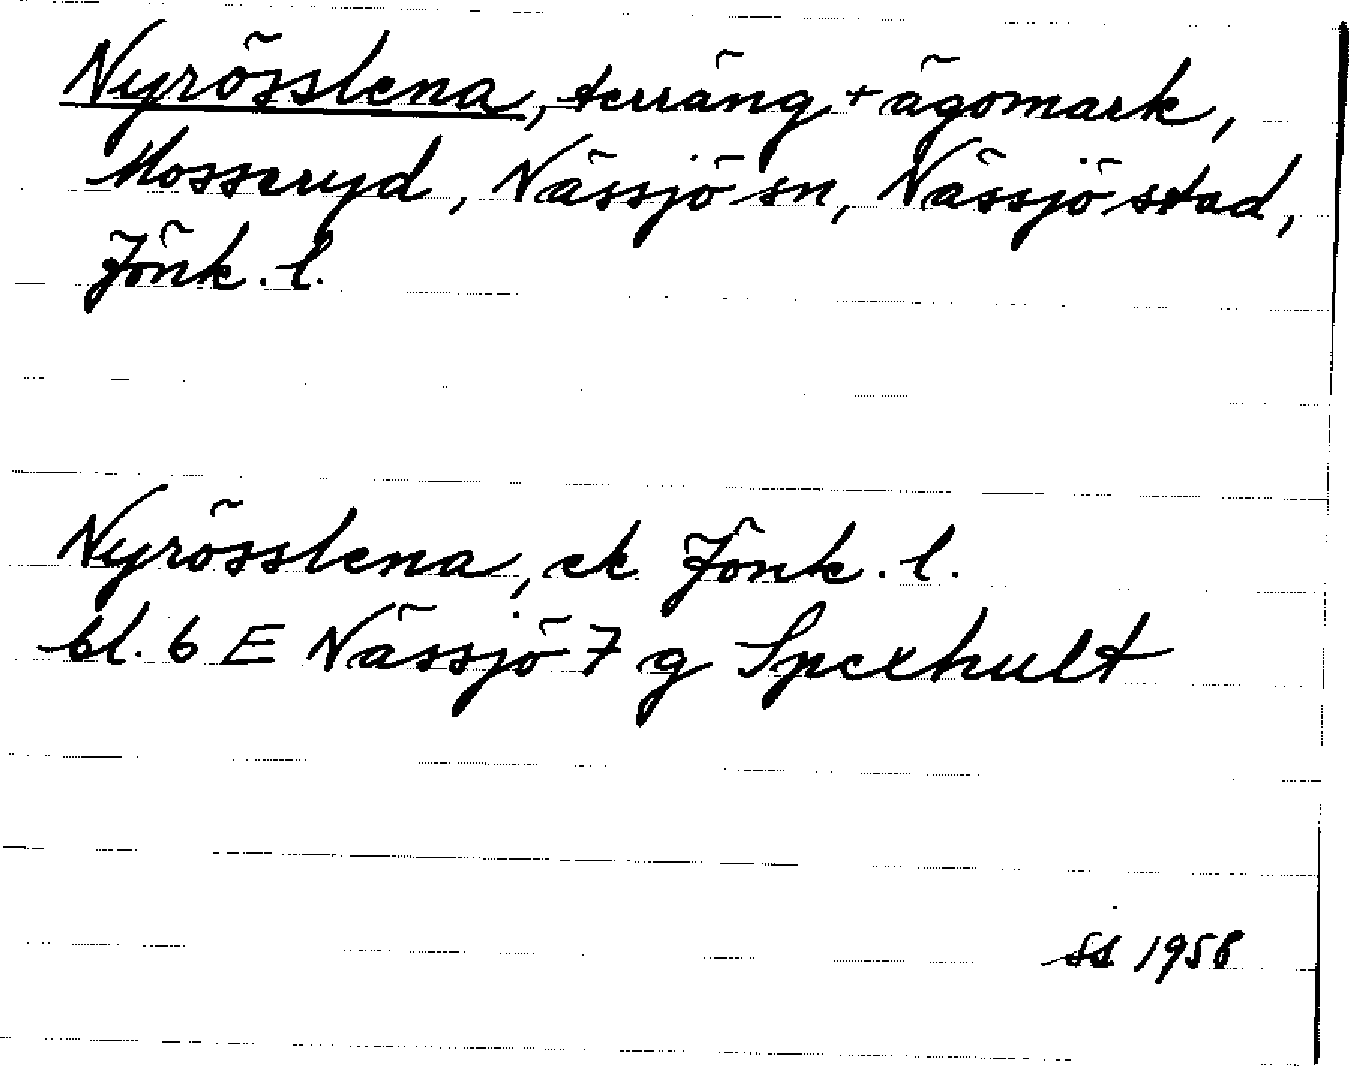 Nyrösslena, terräng + ägomark,
Mosseryd, Nässjö sn, Nässjö stad,
Jönk. l.
Nyrösslena, ek Jönk. l.
bl. 6 E Nässjö 7 g Spexhult
SS 1958